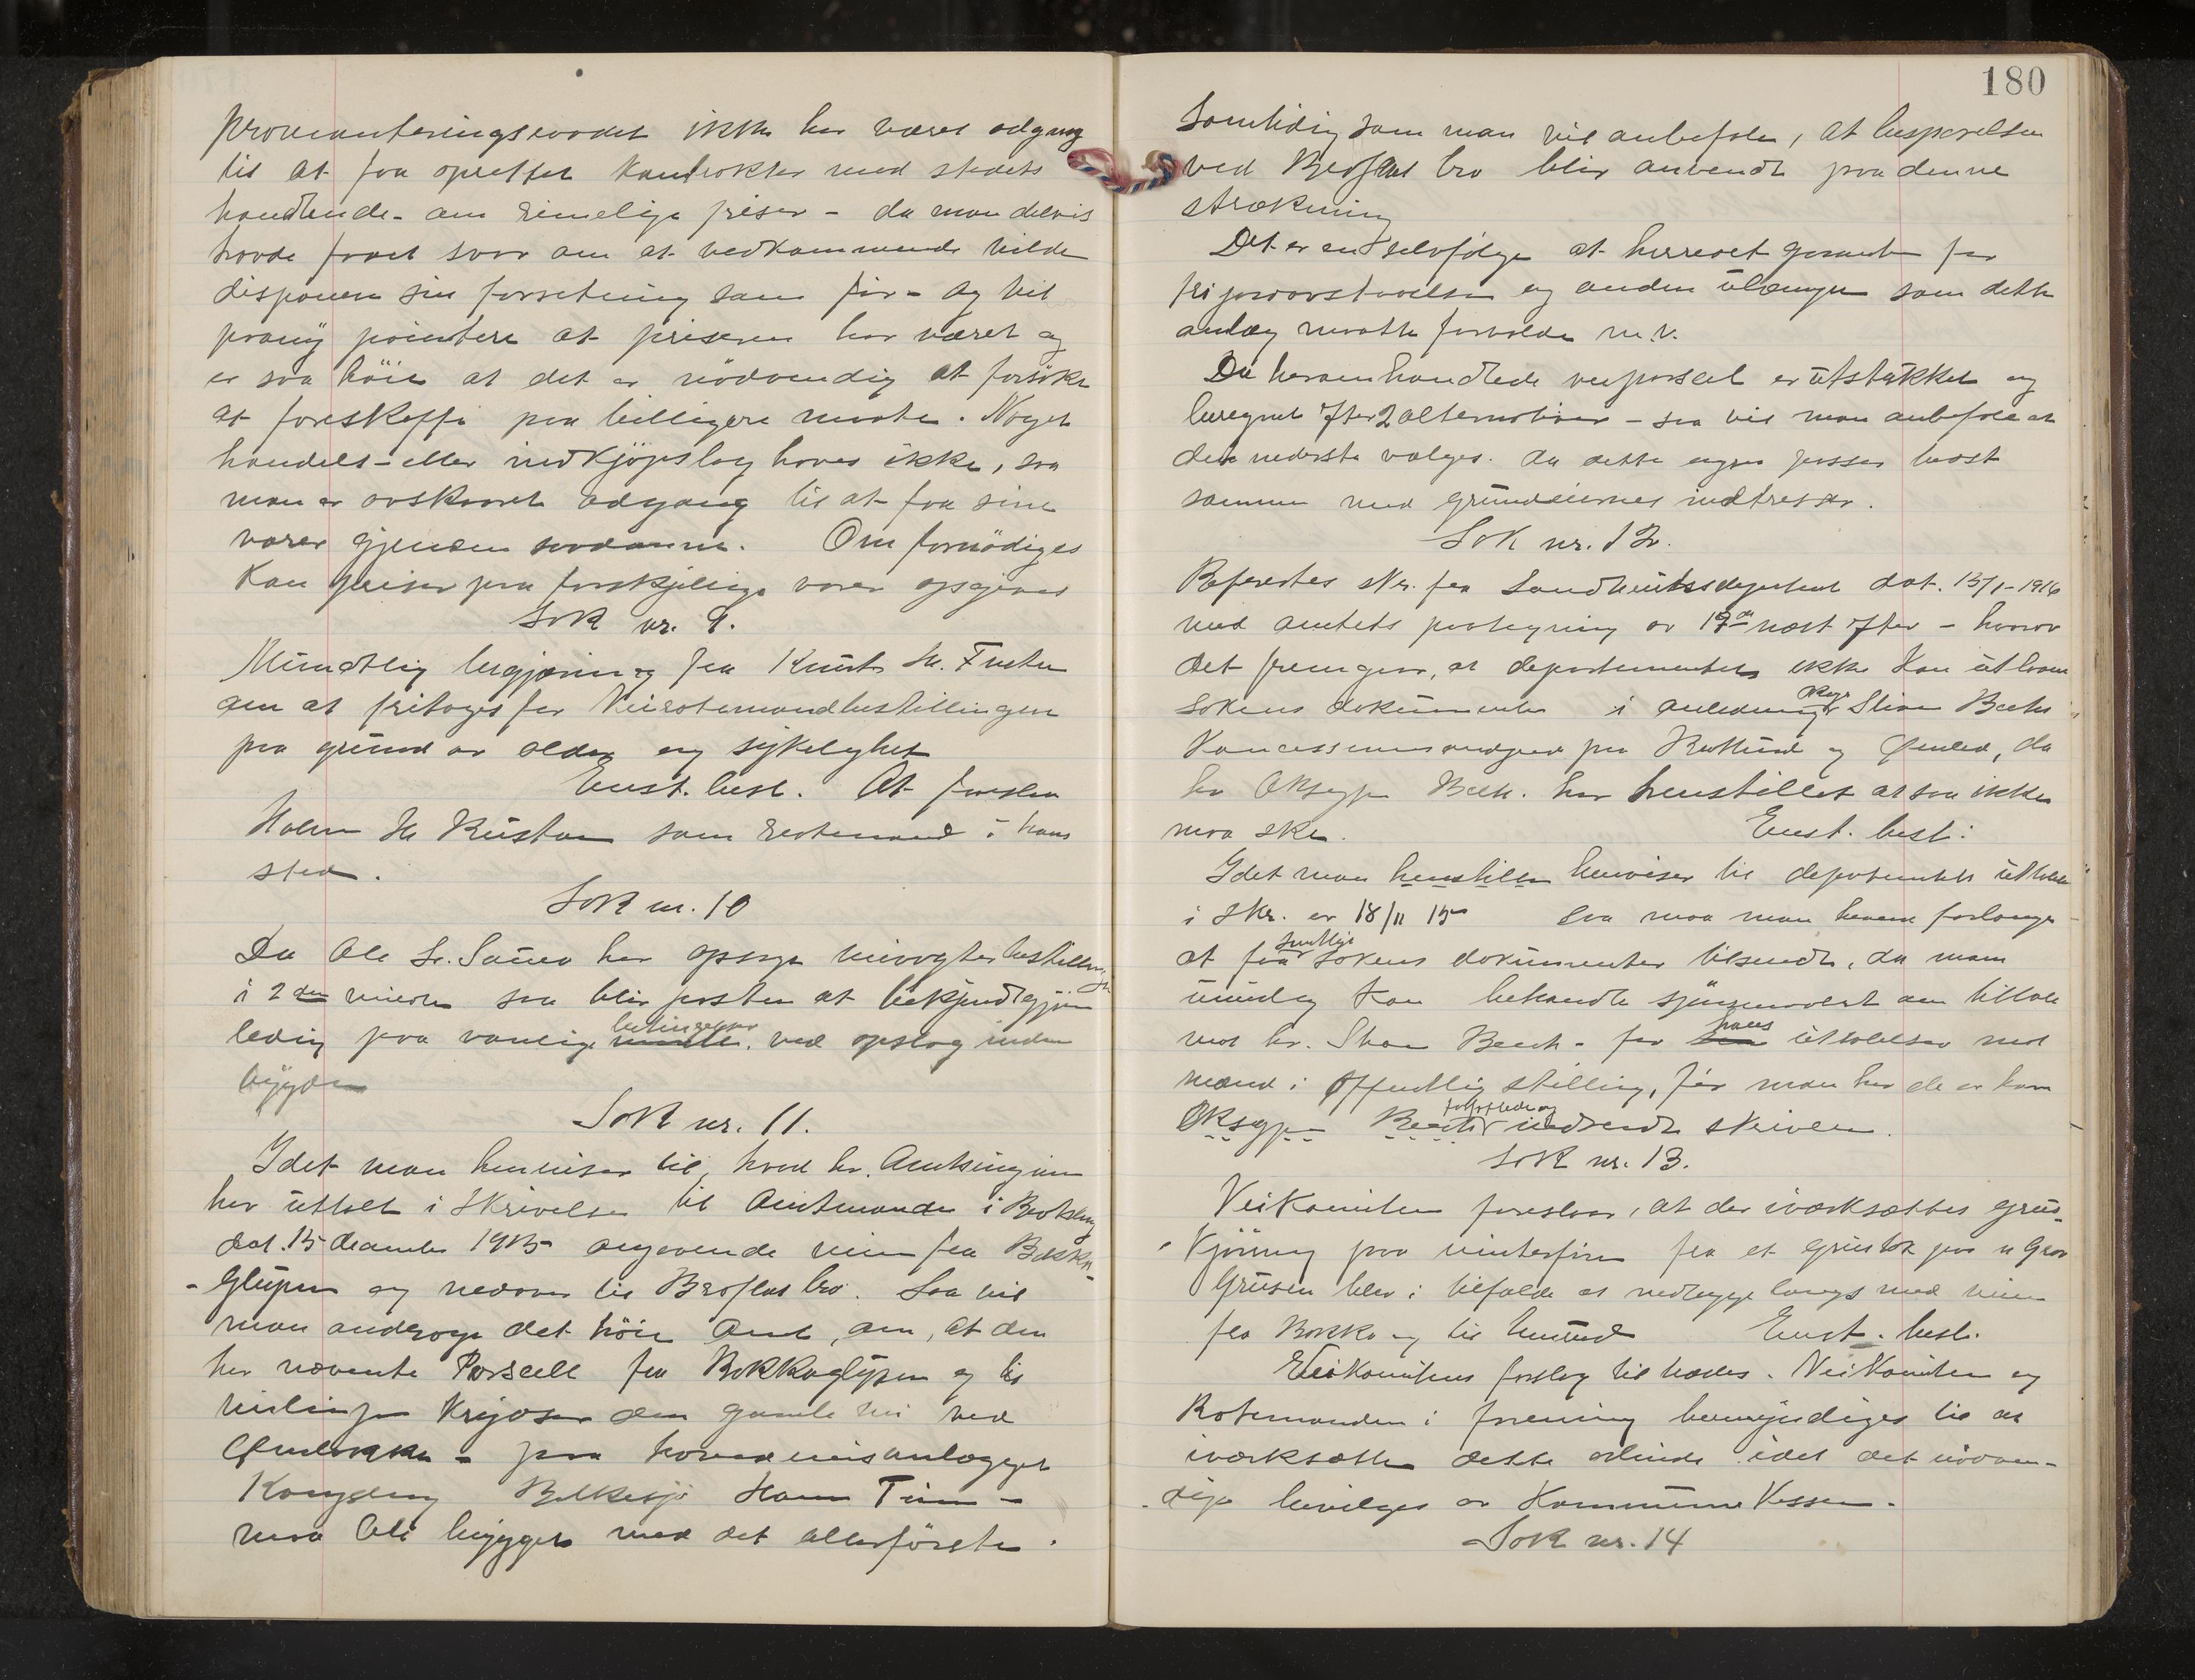 provianteringsraadet ikke har været adgang
til at faa oprettet kontrakter med stedets
handlende - om rimelige priser - da man delvis
havde faaet svar om at vedkommende vilde
disponere sin forretning som før - og vil
paany pointere at priserne har været og
er saa høie at det er nødvendig at forsøke
at fåreskaffe paa billigere maate. Noget
handels- eller indkjøpslag haves ikke, saa
man er avskaaret adgang til at faa sine
varer gjennem saadanne. Om fornødiges
kan priser paa forskjellige varer opgives
Sak nr. 9.
Mundtlig begjæring fra Knut H.
om at fritages for Veirotemandbestillingen
paa grund av alder og sykelighet
Enst. besl. At foreslaa
Halvor H. Rustan som rotemand i hans
sted.
Sak nr. 10
Da Ole S. har opsagt veivogterbestillingen
i 2den saa blir posten at bekjendtgjøre
ledig paa vanlige betingelser ved opslag inden
bygden
Sak nr. 11.
Idet man henviser til, hvad hr. Amtsingeniøren
har uttalt i skrivelse til Amtmanden i Buskerud
dat. 15 december 1915 angaaende veien fra Bakka-
glupen og nedover til Broflat bro. Saa vil
man andrage det høie Amt, om, at den
her nævnte Parsell fra Bakkaglupen og til
veilinjen krydser den gamle vei ved
- paa hovedveisanlægget
Kongsberg Bolkesjø Tinn -
maa bli bygget med det allerførste.
180
Samtidig som man vil anbefale, at besparelsen
ved Broflat bro blir anvendt paa denne
strækning
Det er en selvfølge at herredet garanterer for
fri jordavstaaelse og anden ulæmpe som dette
anlæg maatte forvolde m.v.
Da heromhandlede veiparsel er utstukket og
beregnet efter 2 alternativer - saa vil man anbefale at
den nederste vælges. da dette passer bedst
sammen med grundeiernes indtresser.
Sak nr. 12.
Refereretes skr. fra Landbruksdepartement dat. 13/1-1916
med amtets paategning av 19de næst efter - hvorav
det fremgaar, at departementet ikke kan utlaane
sakens dokumenter i anledning Oksgr. Beck
Koncessionsandragende paa og , da
hr Oksgr. Beck har henstillet at saa ikke
maa ske. Enst. besl:
Idet man henstiller henviser til departementets uttalelse
i skr. av 18/11 15 saa maa man herved forlange
at faa samtlige sakens dokumenter tilsendt, da man
umulig kan behandle spørsmaalet om tiltale
mot hr. Beck - for hans uttalelser mot
mænd i offentlig stilling, før man har de av ham
Oksgr. Beck forfattede og indsendte skrivelser.
Sak nr. 13.
Veikomiteen foreslaar, at der iværksættes grus-
kjøring paa vinterføre fra et grustak paa n Graa
Grusen blev i tilfælde at nedlægge langs med veien
fra Bakka og til Enst. besl.
Veikomiteens forslag tiltrædes. Veikomiteen og
Rotemanden i forening bemyndiges til at
iværksætte dette arbeide idet det nødven-
dige bevilges av Kommunekassen.
Sak nr. 14